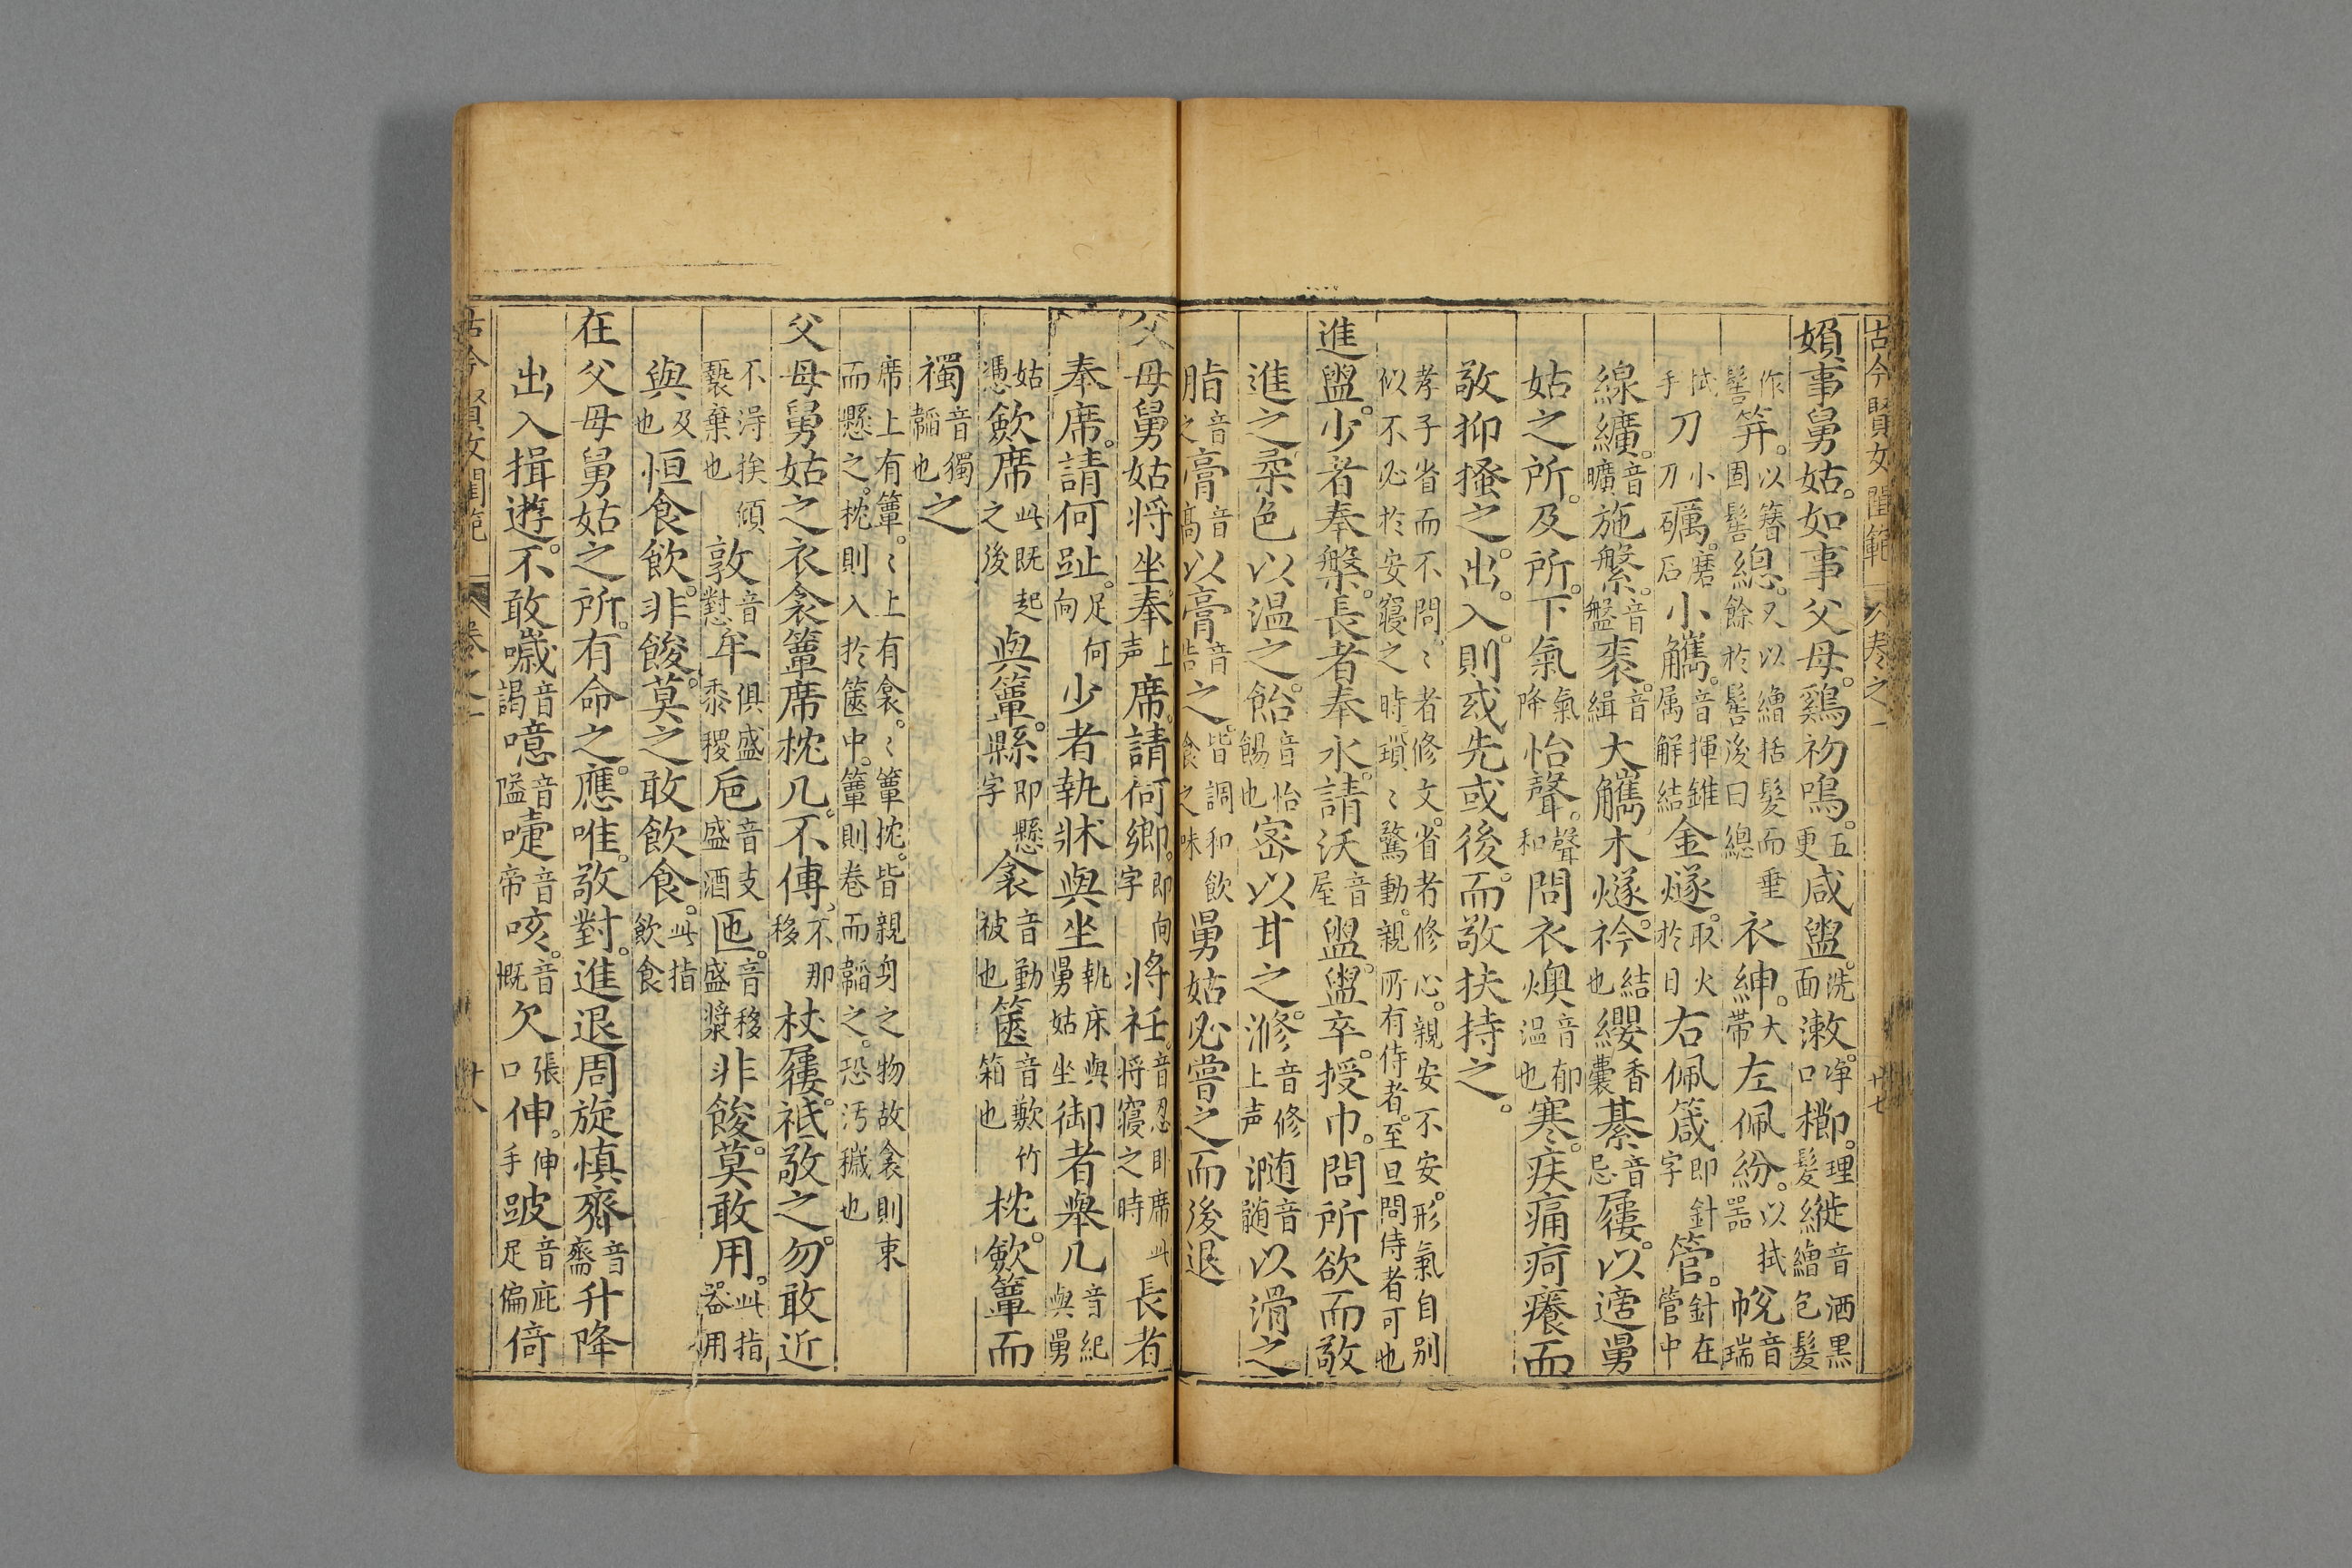 古今賢女閨範 卷之一 廿七
婦事舅姑。如事父母。鷄初鳴。五更咸盥。洗面漱。净口櫛。理髮縰音洒黒繒包髮
作髻笄。以簪固髻總。又以繒括髮而垂餘於髻後曰總衣紳。大帶左佩紛。以拭器帨音瑞
拭手刀小刀礪。磨石小觿。音揮錐属解結金燧。取火於日右佩箴即針字管。針在管中
線纊。音曠施縏。音盤袠。音緝大觿木燧。衿。結也纓香囊綦音忌屨。以適舅
姑之所。及所。下氣氣降怡聲。聲和問衣燠音郁温也寒。疾痛疴癢而
敬抑搔之。出。入。則或先或後。而敬扶持之。
孝子省而不問〻者修文。省者修心。親安不安。形氣自别
似不必於安寢之時瑣〻驚動。親所有侍者。至旦問侍者可也
進盥。少者奉槃。長者奉水。請沃音屋盥。盥卒。授巾。問所欲而敬
進之柔色以温之。飴音怡餳也宻以甘之。滫。音修上声瀡音髓以滑之
脂音之膏音髙以膏音誥之。皆調和飲食之味舅姑必嘗之而後退
父母舅姑将坐奉上声席。請何鄉。即向字将衽。音忍卧席此将寢之時長者
奉席。請何趾。足何向少者執牀與坐執床與舅姑坐御者舉几音紀與舅
姑憑歛席此既起之後與簟。縣即懸字衾音勤被也篋音歉竹箱也枕。歛簟而
襡音獨韜也之
席上有簟。〻上有衾。〻簟枕。皆親身之物故衾則束
而懸之。枕則入於篋中。簟則卷而韜之。恐汚穢也
父母舅姑之衣衾簟席枕几。不傳、不那移杖屨。祗敬之。勿敢近
不淂挨傾褻棄也敦音對牟俱盛黍稷巵音支盛酒匜。音移盛漿非餕。莫敢用。此指器用
與及也恒食飲。非餕。莫之敢飲食。此指飲食
在父母舅姑之所。有命之。應唯。敬對。進退周旋慎齊音齋升降
出入揖遊。不敢噦音謁噫音隘嚔音帝咳。音慨欠張口伸。伸手跛音庇足偏倚
古今賢女閨範 卷之一 廿八